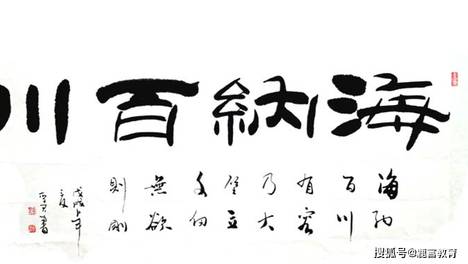 海納百川
海納
百川
有容
乃大
壁立
千仞
無欲
則剛
戊戌
書
搜狐号@
教育